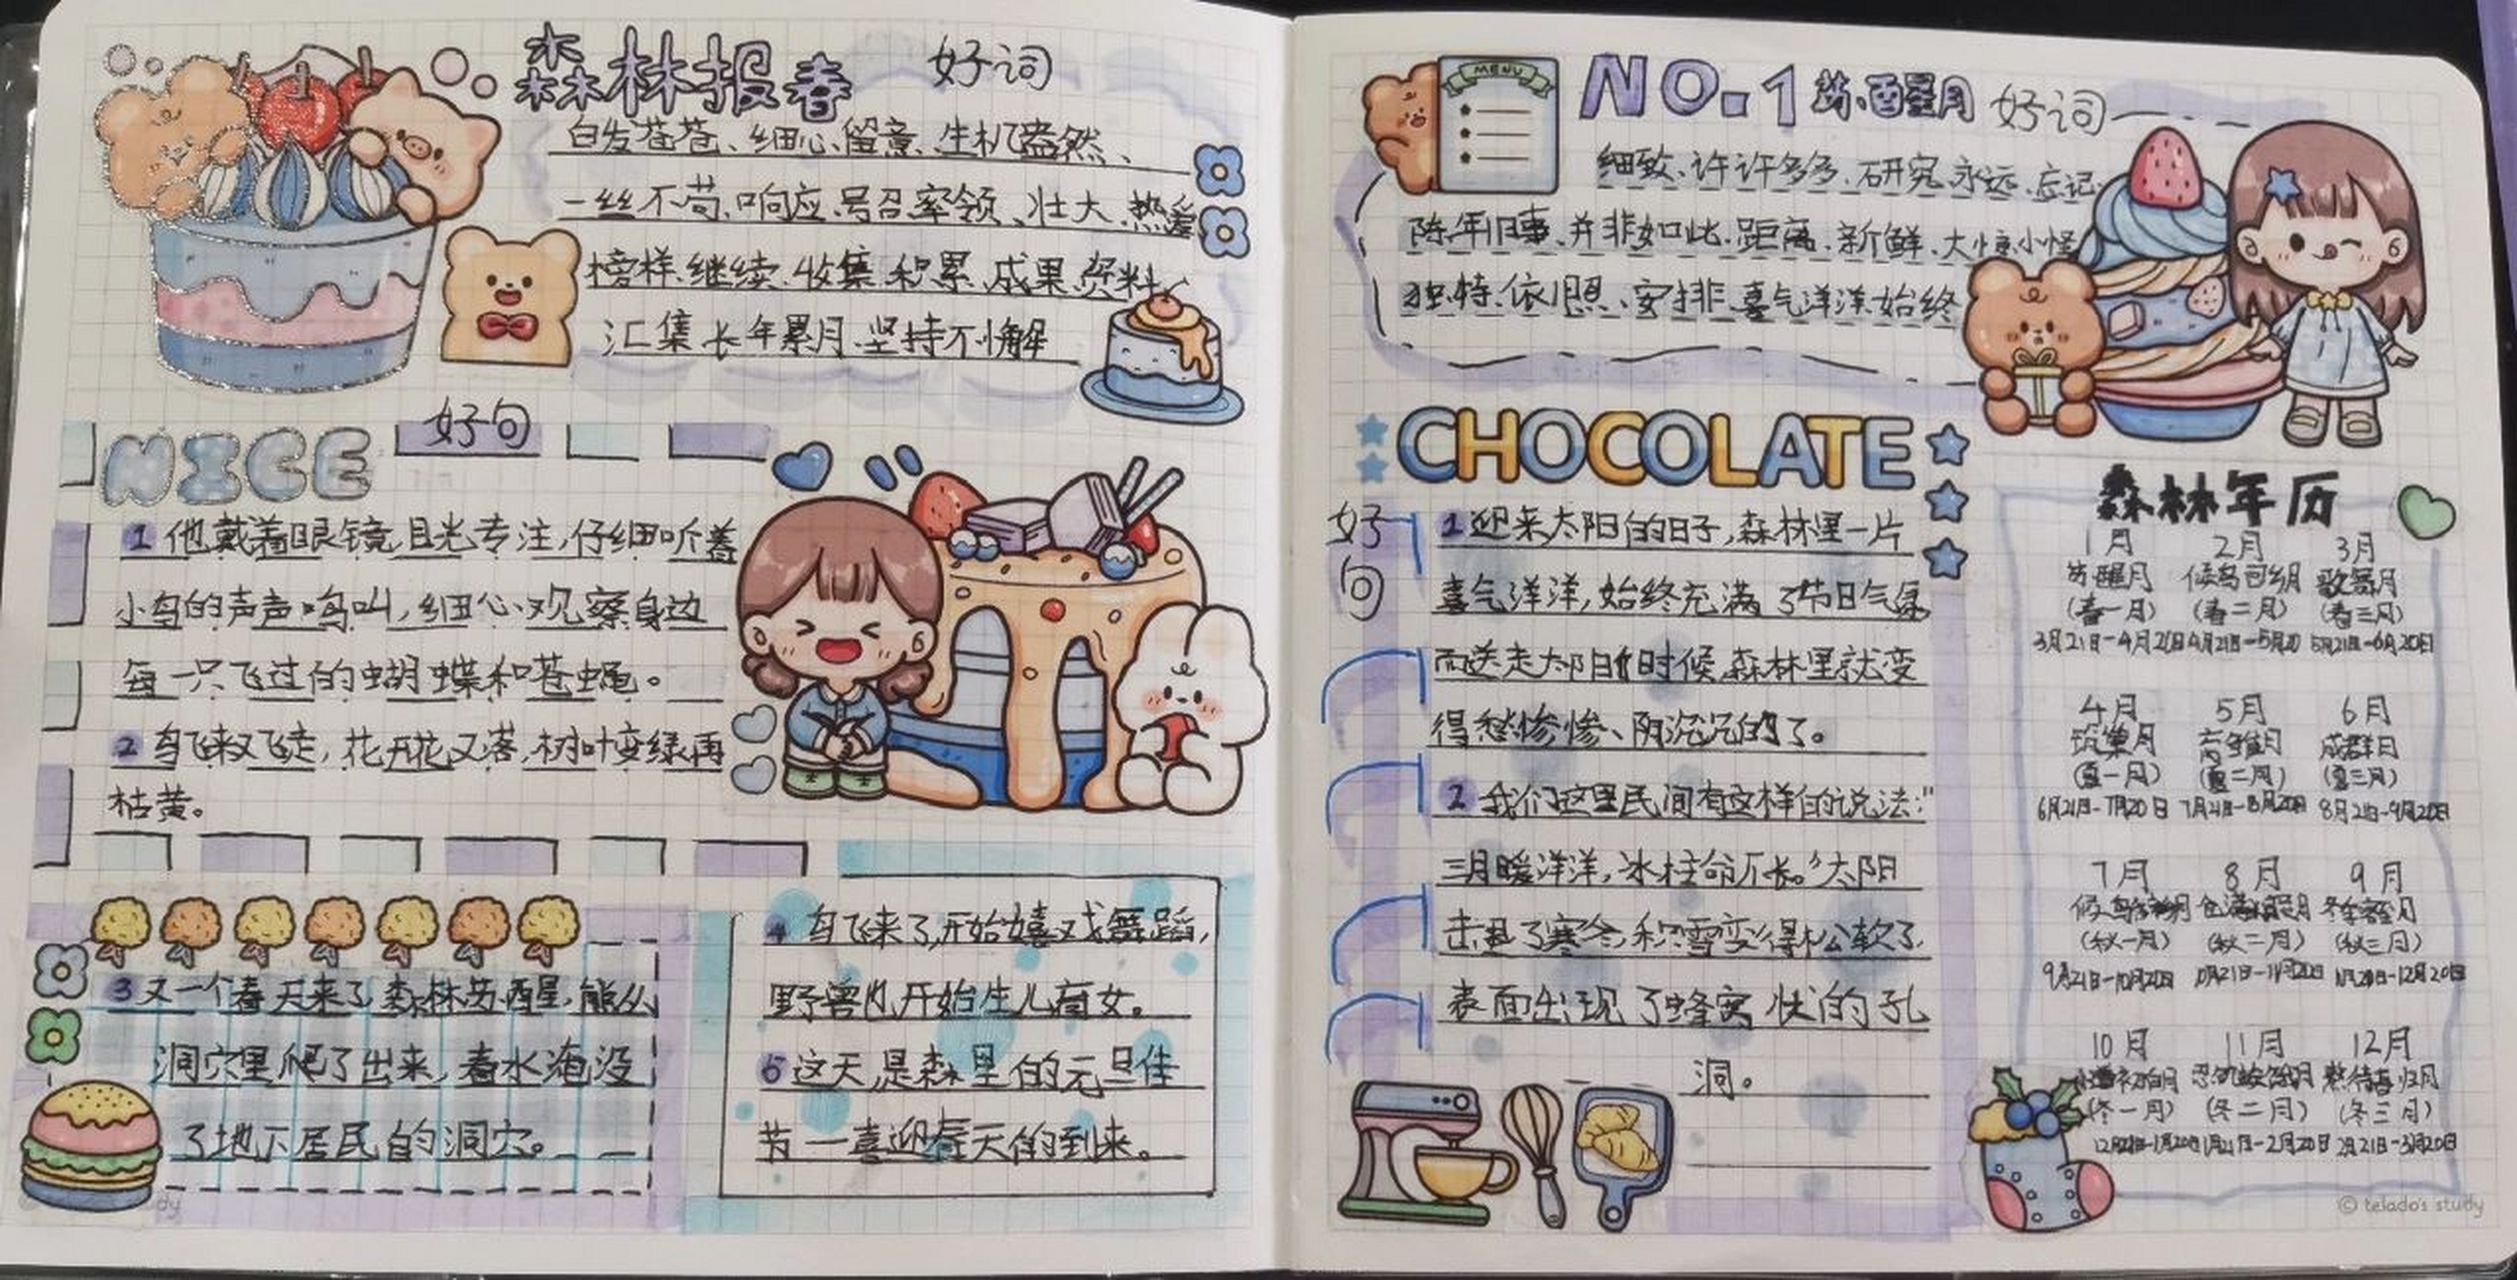 森林报春 好词
白发苍苍、细心、留意、生机盎然、
一丝不苟、响应、号召、率领、壮大、热爱
榜样、继续、收集、积累、成果、资料
汇集、长年累月、坚持不懈
NICE 好句
1 他戴着眼镜,目光专注,仔细听着
小鸟的声声鸣叫,细心观察身边
每一只飞过的蝴蝶和苍蝇。
2 鸟飞来又飞走,花开花又落,树叶变绿再
枯黄。
3 又一个春天来了,森林苏醒,熊从
洞穴里爬了出来,春水淹没
了地下居民的洞穴。
4 鸟飞来了,开始嬉戏舞蹈,
野兽也开始生儿育女。
5 这天,是森里的元旦佳
节一喜迎春天的到来。
MENU
NO.1 苏醒月 好词
细致、许许多多、研究、永远、忘记
陈年旧事、并非如此、距离、新鲜、大惊小怪
独特、依照、安排、喜气洋洋、始终
CHOCOLATE
好句
1 迎来太阳的日子,森林里一片
喜气洋洋,始终充满了节日气氛
而送走太阳的时候,森林里就变
得愁惨惨、阴沉沉的了。
2 我们这里民间有这样的说法:"
三月暖洋洋,冰柱命不长。"太阳
击退了寒冬,积雪变得松软了,
表面出现了蜂窝状的孔
洞。
森林年历
1月 2月 3月
苏醒月 候鸟回归月 歌舞月
(春一月) (春二月) (春三月)
3月21日-4月20日 4月21日-5月20 5月21日-6月20日
4月 5月 6月
筑巢月 育雏月 成群月
(夏一月) (夏二月) (夏三月)
6月21日-7月20日 7月21日-8月20日 8月21日-9月20日
7月 8月 9月
候鸟辞乡月 仓满粮足月 冬客至月
(秋一月) (秋二月) (秋三月)
9月21日-10月20日 10月21日-11月20日 11月21日-12月20日
10月 11月 12月
小道初白月 忍饥挨饿月 熬待春归月
(冬一月) (冬二月) (冬三月)
12月21日-1月20日 1月21日-2月20日 2月21日-3月20日
© telado's study